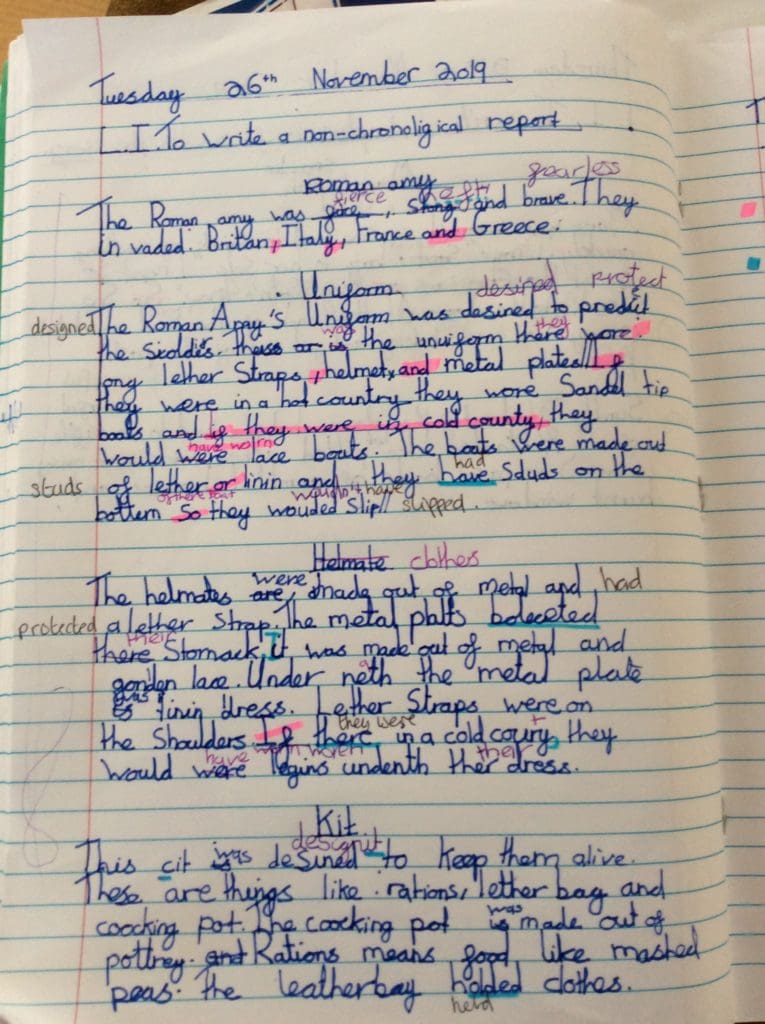 Tuesday 26th November 2019
L.I. To write a non-chronoligical report.
Roman amy
fearless
fierce
The Roman amy was , Stong and brave. They
in vaded. Britan, Italy, France and Greece.
Uniform
desired protect
designed The Roman Army's Uniform was desined to predict
was they
the the unuiform there wore.
long lether Straps, helmet, and metal plates. If
they were in a hot country they wore Sandel tip
boats and if they were in cold county, they
have worn
would were lace boats. The boats were made out
had
studs of lether or linin and they have Sduds on the
wouldn't have
bottem So they wouded Slip slipped.
Helmate clothers
were
The helmates are, made out of metal and had
protected a lether strap. The metal plats
their
there Stomack, It was made out of metal and
golden lace. Under neth the metal plate
was
is linin dress. Lether Straps were on
they were t
the Shoulders. If there in a cold coury, they
have worn woren their
would were legins undenth ther dress.
Kit.
designit
This cit was desined to keep them alive.
These are things like rations, lether bag and
was
coocking pot. The coocking pot is made out of
pottrey. and Rations means food like mashed
peas. the leatherbag holded clothes.
held